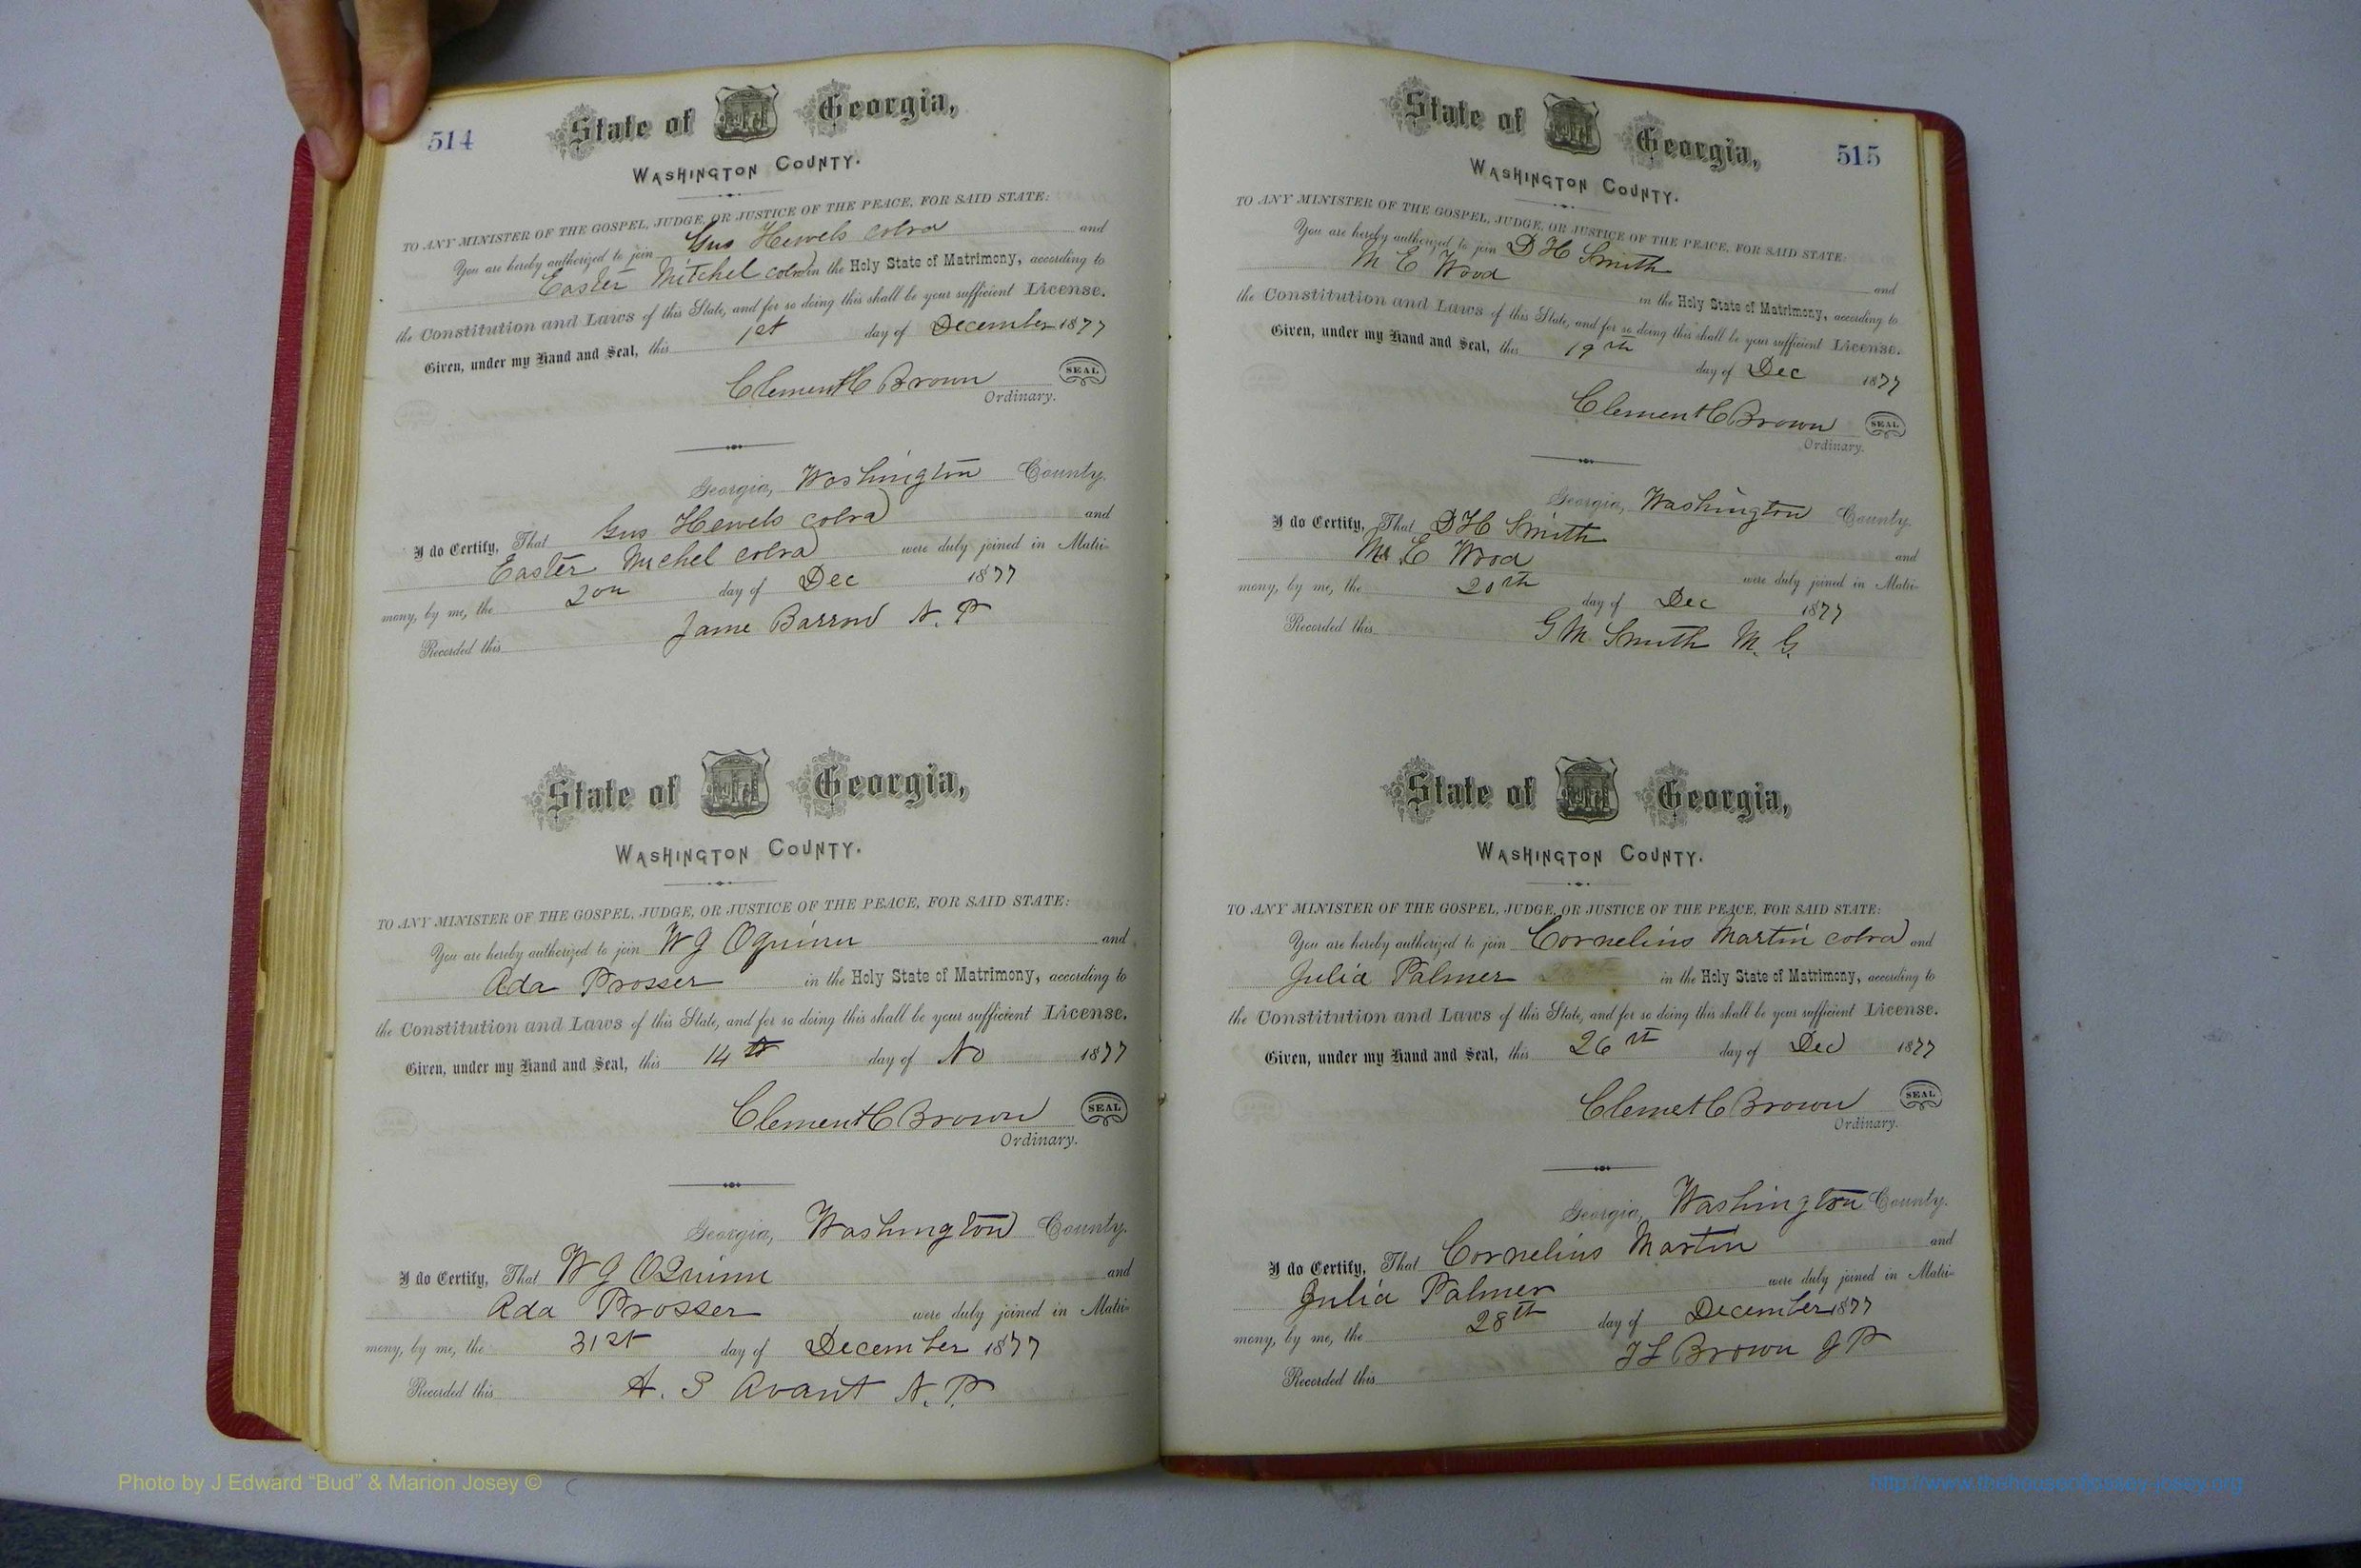 514
State of Georgia,
WASHINGTON COUNTY.
TO ANY MINISTER OF THE GOSPEL, JUDGE, OR JUSTICE OF THE PEACE, FOR SAID STATE:
You are hereby authorized to join Gus Hewels colrd and
Easter Mitchel colrd in the Holy State of Matrimony, according to
the Constitution and Laws of this State, and for so doing this shall be your sufficient License.
Given, under my Hand and Seal, this 1st day of December 1877
Clement C Brown SEAL
Ordinary.
Georgia, Washington County.
I do Certify, That Gus Hewels colrd and
Easter Michel colrd were duly joined in Matri-
mony, by me, the 2on day of Dec 1877
Recorded this Jame Barrow N. P
State of Georgia,
WASHINGTON COUNTY.
TO ANY MINISTER OF THE GOSPEL, JUDGE, OR JUSTICE OF THE PEACE, FOR SAID STATE:
You are hereby authorized to join W G Oquinn and
Ada Prosser in the Holy State of Matrimony, according to
the Constitution and Laws of this State, and for so doing this shall be your sufficient License.
Given, under my Hand and Seal, this 14th day of No 1877
Clement C Brown SEAL
Ordinary.
Georgia, Washington County.
I do Certify, That W G OQuinn and
Ada Prosser were duly joined in Matri-
mony, by me, the 31st day of December 1877
Recorded this A. S Avant N. P.
515
State of Georgia,
WASHINGTON COUNTY.
TO ANY MINISTER OF THE GOSPEL, JUDGE, OR JUSTICE OF THE PEACE, FOR SAID STATE:
You are hereby authorized to join D H Smith and
M E Wood in the Holy State of Matrimony, according to
the Constitution and Laws of this State, and for so doing this shall be your sufficient License.
Given, under my Hand and Seal, this 19th day of Dec 1877
Clement C Brown SEAL
Ordinary.
Georgia, Washington County.
I do Certify, That D H Smith and
M E Wood were duly joined in Matri-
mony, by me, the 20th day of Dec 1877
Recorded this G M Smith M. G.
State of Georgia,
WASHINGTON COUNTY.
TO ANY MINISTER OF THE GOSPEL, JUDGE, OR JUSTICE OF THE PEACE, FOR SAID STATE:
You are hereby authorized to join Cornelius Martin colrd and
Julia Palmer in the Holy State of Matrimony, according to
the Constitution and Laws of this State, and for so doing this shall be your sufficient License.
Given, under my Hand and Seal, this 26th day of Dec 1877
Clemet C Brown SEAL
Ordinary.
Georgia, Washington County.
I do Certify, That Cornelius Martin and
Julia Palmer were duly joined in Matri-
mony, by me, the 28th day of December 1877
Recorded this Brown J P
Photo by J Edward “Bud” & Marion Josey ©